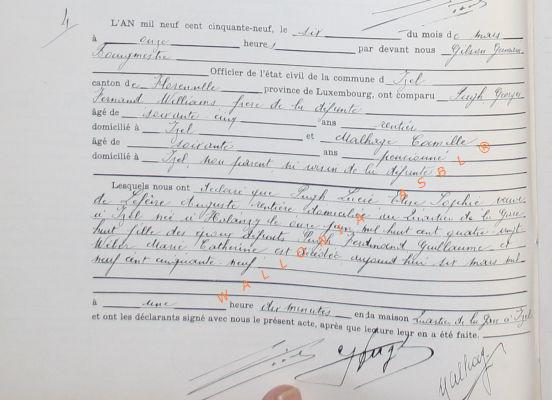 4
L'AN mil neuf cent cinquante-neuf, le six du mois de mars
à onze heures par devant nous Gilson
Bourgmestre
Officier de l'état civil de la commune d'Izel
canton de Florenville province de Luxembourg, ont comparu Pugh Georges
Fernand Williams frère de la défunte
âgé de soixante cinq ans rentier
domicilié à Izel et Malhage Camille
âgé de soixante ans pensionné
domicilié à Izel, non parent ni voisin de la défunte
Lesquels nous ont déclaré que Pugh Lucie Sophie veuve
de Lefèvre Auguste rentière domiciliée au Quartier de la Gare
à Izel née à le onze juin mil huit cent quatre vingt
huit fille des époux défunts Pugh Ferdinand Guillaume et
Weber Marie Catherine est décédée aujourd'hui six mars mil
neuf cent cinquante neuf
à une heure dix minutes en la maison Quartier de la Gare à Izel
et ont les déclarants signé avec nous le présent acte, après que lecture leur en a été faite.
Pugh
Malhage
WALLONIA ASBL ®